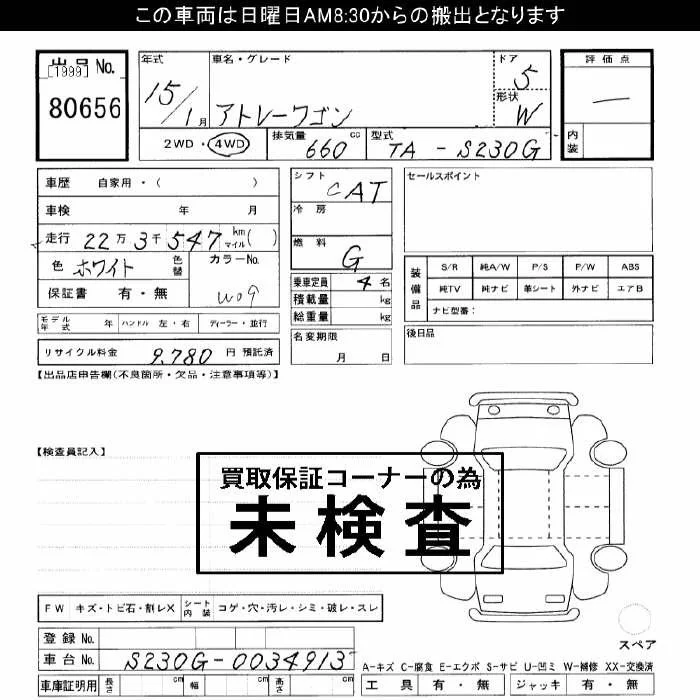 この車両は日曜日AM8:30からの搬出となります
出品No. [1999] 80656
年式 15/1月 車名・グレード アトレーワゴン ドア 5 形状 W
2WD・4WD 排気量 660 cc 型式 TA - S230G
評価点 —
内装
車歴 自家用・( )
車検 年 月
走行 22万3千547 km マイル ( )
色 ホワイト 色替 カラーNo. W09
保証書 有・無
シフト CAT
冷房
燃料 G
乗車定員 4名
積載量 kg
総重量 kg
セールスポイント
装備品 S/R 純A/W P/S P/W ABS
純TV 純ナビ 革シート 外ナビ エアB
ナビ型番:
モデル年式 年 ハンドル 左・右 ディーラー・並行
名変期限 月 日
後日品
リサイクル料金 9,780 円 預託済
【出品店申告欄(不良箇所・欠品・注意事項等)】
【検査員記入】
買取保証コーナーの為
未検査
FW キズ・トビ石・割レX シート内装 コゲ・穴・汚レ・シミ・破レ・スレ
登録No.
車台No. S230G-0034913
スペア
A-キズ C-腐食 E-エクボ S-サビ U-凹ミ W-補修 XX-交換済
車庫証明用 長さ cm 幅 cm 高さ cm
工具 有・無 ジャッキ 有・無